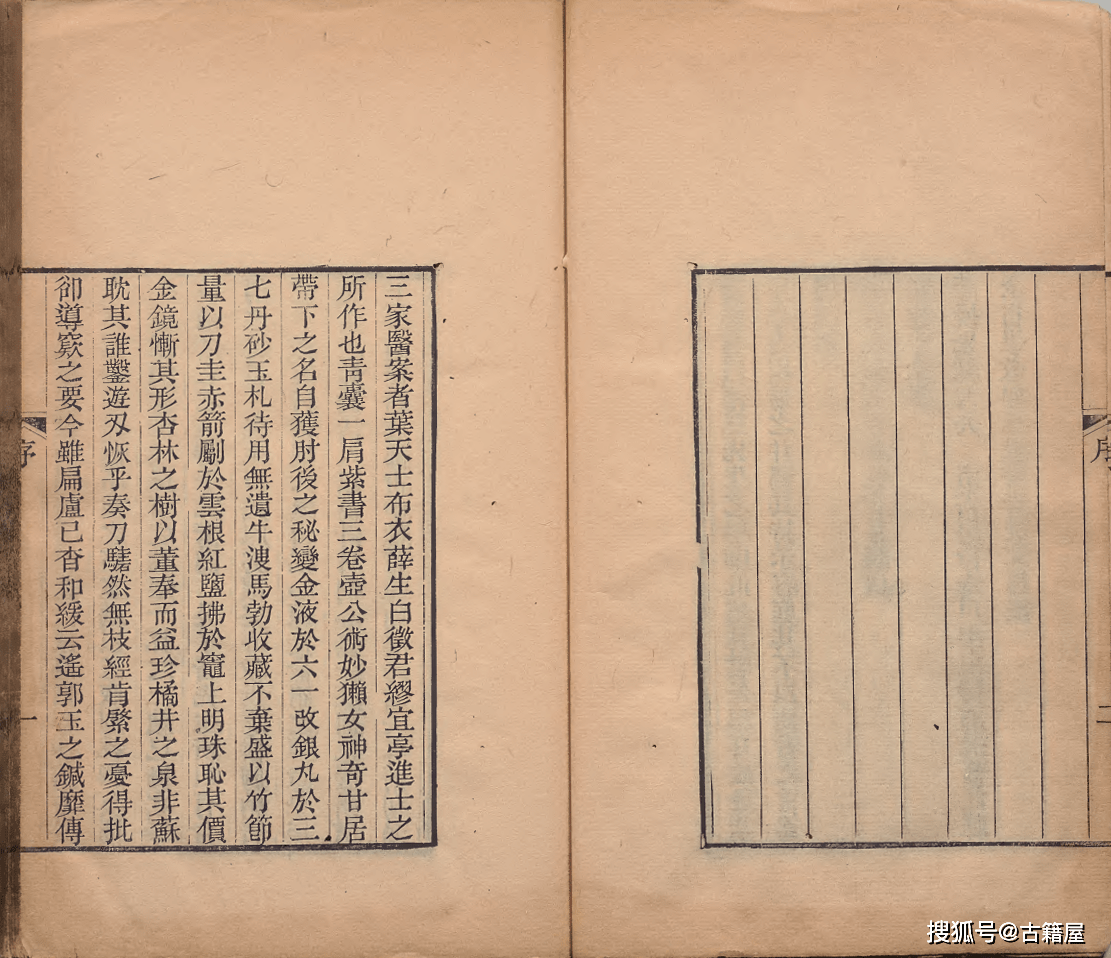 三家醫案者葉天士布衣薛生白徵君繆宜亭進士之
所作也靑囊一肩紫書三卷壺公術妙獺女神奇甘居
帶下之名自獲肘後之秘變金液於六一改銀丸於三
七丹砂玉札待用無遺牛溲馬勃收藏不棄盛以竹節
量以刀圭赤箭劚於雲根紅鹽拂於竈上明珠恥其價
金鏡慚其形杏林之樹以董奉而益珍橘井之泉非蘇
耽其誰鑿遊刃恢乎奏刀騞然無枝經肯綮之憂得批
卻導窾之要今雖扁盧已杳和緩云遙郭玉之鍼靡傳
序
一
序
二
搜狐号@古籍屋